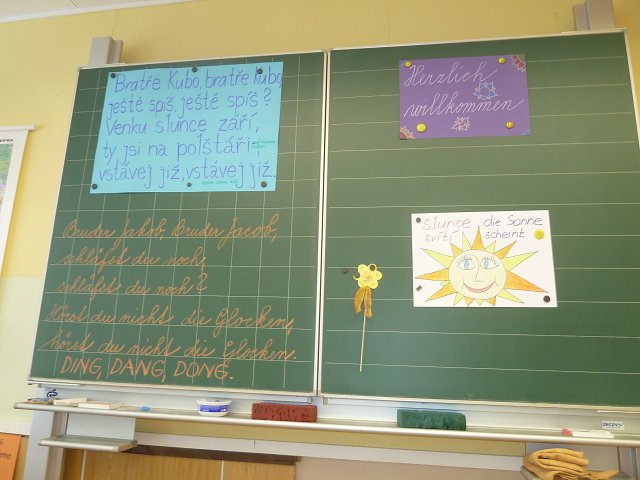 Bratře Kubo, bratře Kubo,
ještě spíš, ještě spíš?
Venku slunce září,
ty jsi na polštáři
vstávej již, vstávej již.
Bruder Jakob, Bruder Jacob,
schläfst du noch,
schläfst du noch?
Hörst du nicht die Glocken,
hörst du nicht die Glocken.
DING, DANG, DONG.
Herzlich
willkommen
slunce die Sonne
svítí scheint